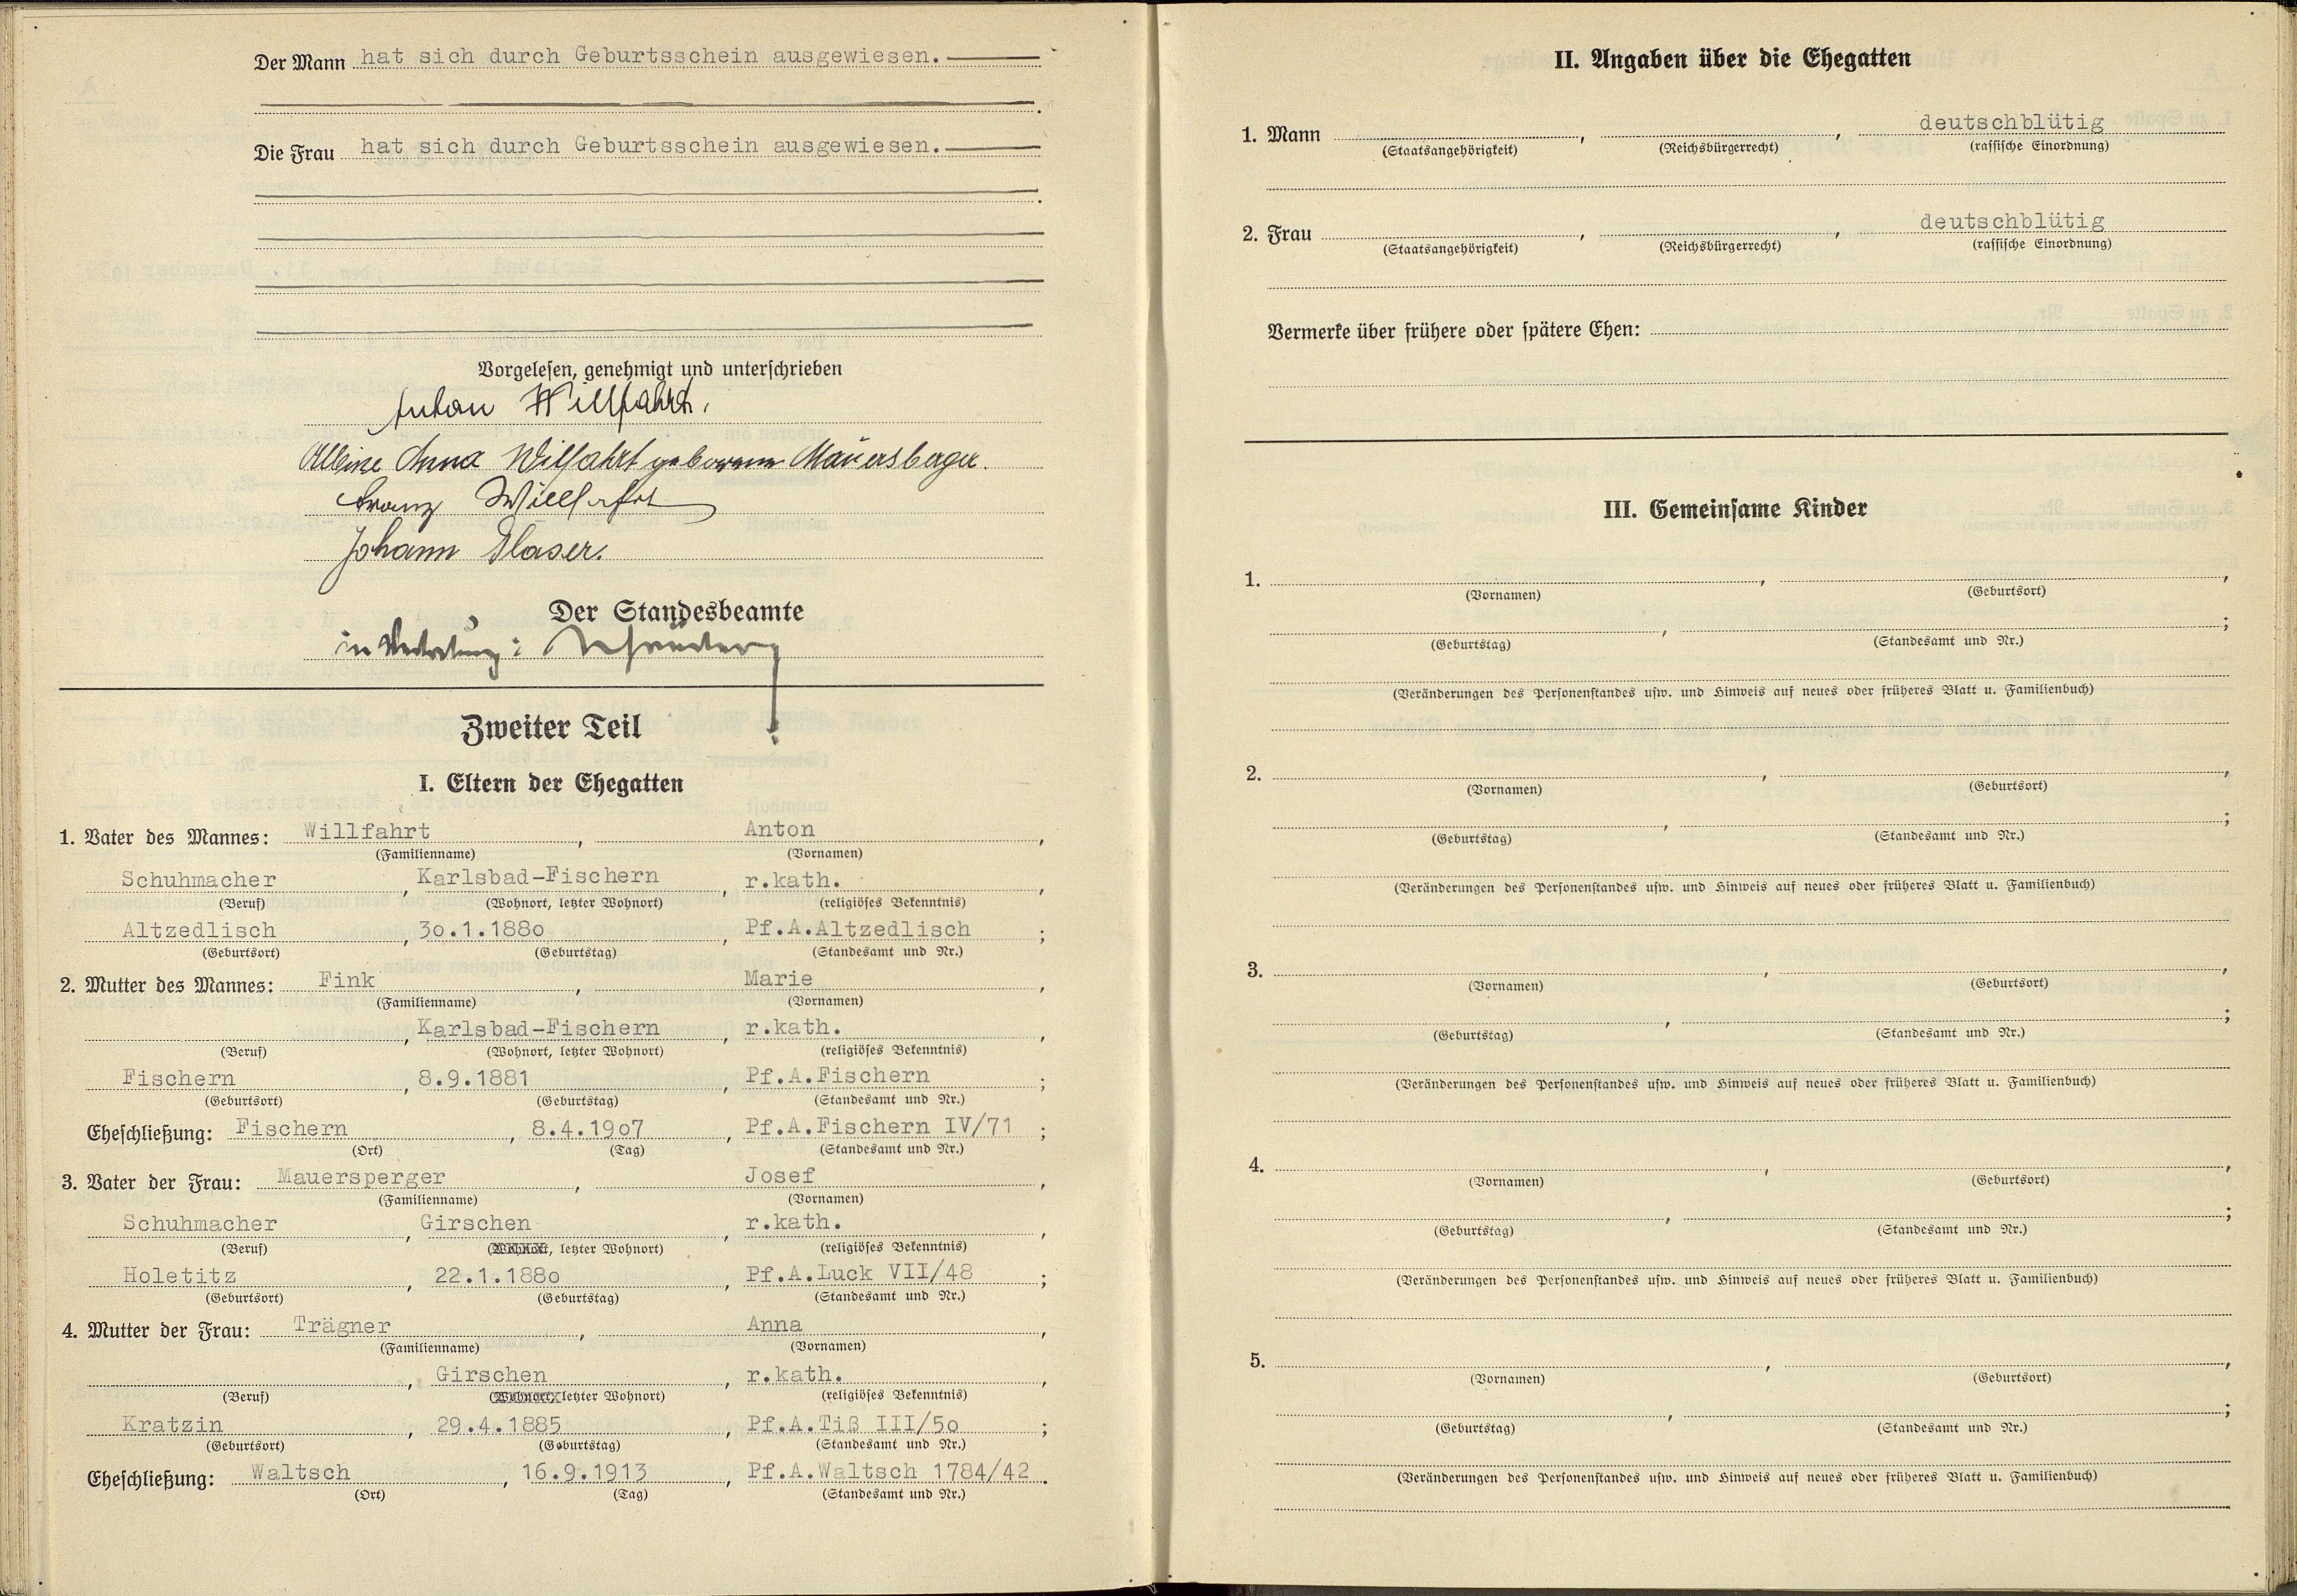 Der Mann hat sich durch Geburtsschein ausgewiesen.
Die Frau hat sich durch Geburtsschein ausgewiesen.
Vorgelesen, genehmigt und unterschrieben
Anton Willfahrt.
Albine Anna Wilfahrt geborene Mauersberger.
Franz Willfahrt
Johann Glaser.
Der Standesbeamte
in Vertretung:
Zweiter Teil
I. Eltern der Ehegatten
1. Vater des Mannes: Willfahrt, Anton,
(Familienname) (Vornamen)
Schuhmacher, Karlsbad-Fischern, r.kath.,
(Beruf) (Wohnort, letzter Wohnort) (religiöses Bekenntnis)
Altzedlisch, 3o.1.188o, Pf.A.Altzedlisch;
(Geburtsort) (Geburtstag) (Standesamt und Nr.)
2. Mutter des Mannes: Fink, Marie,
(Familienname) (Vornamen)
, Karlsbad-Fischern, r.kath.,
(Beruf) (Wohnort, letzter Wohnort) (religiöses Bekenntnis)
Fischern, 8.9.1881, Pf.A.Fischern;
(Geburtsort) (Geburtstag) (Standesamt und Nr.)
Eheschließung: Fischern, 8.4.19o7, Pf.A.Fischern IV/71;
(Ort) (Tag) (Standesamt und Nr.)
3. Vater der Frau: Mauersperger, Josef,
(Familienname) (Vornamen)
Schuhmacher, Girschen, r.kath.,
(Beruf) (Wohnort, letzter Wohnort) (religiöses Bekenntnis)
Holetitz, 22.1.188o, Pf.A.Luck VII/48;
(Geburtsort) (Geburtstag) (Standesamt und Nr.)
4. Mutter der Frau: Trägner, Anna,
(Familienname) (Vornamen)
, Girschen, r.kath.,
(Beruf) (Wohnort, letzter Wohnort) (religiöses Bekenntnis)
Kratzin, 29.4.1885, Pf.A.Tiß III/5o;
(Geburtsort) (Geburtstag) (Standesamt und Nr.)
Eheschließung: Waltsch, 16.9.1913, Pf.A.Waltsch 1784/42.
(Ort) (Tag) (Standesamt und Nr.)
II. Angaben über die Ehegatten
1. Mann , , deutschblütig
(Staatsangehörigkeit) (Reichsbürgerrecht) (rassische Einordnung)
2. Frau , , deutschblütig
(Staatsangehörigkeit) (Reichsbürgerrecht) (rassische Einordnung)
Vermerke über frühere oder spätere Ehen:
III. Gemeinsame Kinder
1. , ,
(Vornamen) (Geburtsort)
, ;
(Geburtstag) (Standesamt und Nr.)
(Veränderungen des Personenstandes usw. und Hinweis auf neues oder früheres Blatt u. Familienbuch)
2. , ,
(Vornamen) (Geburtsort)
, ;
(Geburtstag) (Standesamt und Nr.)
(Veränderungen des Personenstandes usw. und Hinweis auf neues oder früheres Blatt u. Familienbuch)
3. , ,
(Vornamen) (Geburtsort)
, ;
(Geburtstag) (Standesamt und Nr.)
(Veränderungen des Personenstandes usw. und Hinweis auf neues oder früheres Blatt u. Familienbuch)
4. , ,
(Vornamen) (Geburtsort)
, ;
(Geburtstag) (Standesamt und Nr.)
(Veränderungen des Personenstandes usw. und Hinweis auf neues oder früheres Blatt u. Familienbuch)
5. , ,
(Vornamen) (Geburtsort)
, ;
(Geburtstag) (Standesamt und Nr.)
(Veränderungen des Personenstandes usw. und Hinweis auf neues oder früheres Blatt u. Familienbuch)